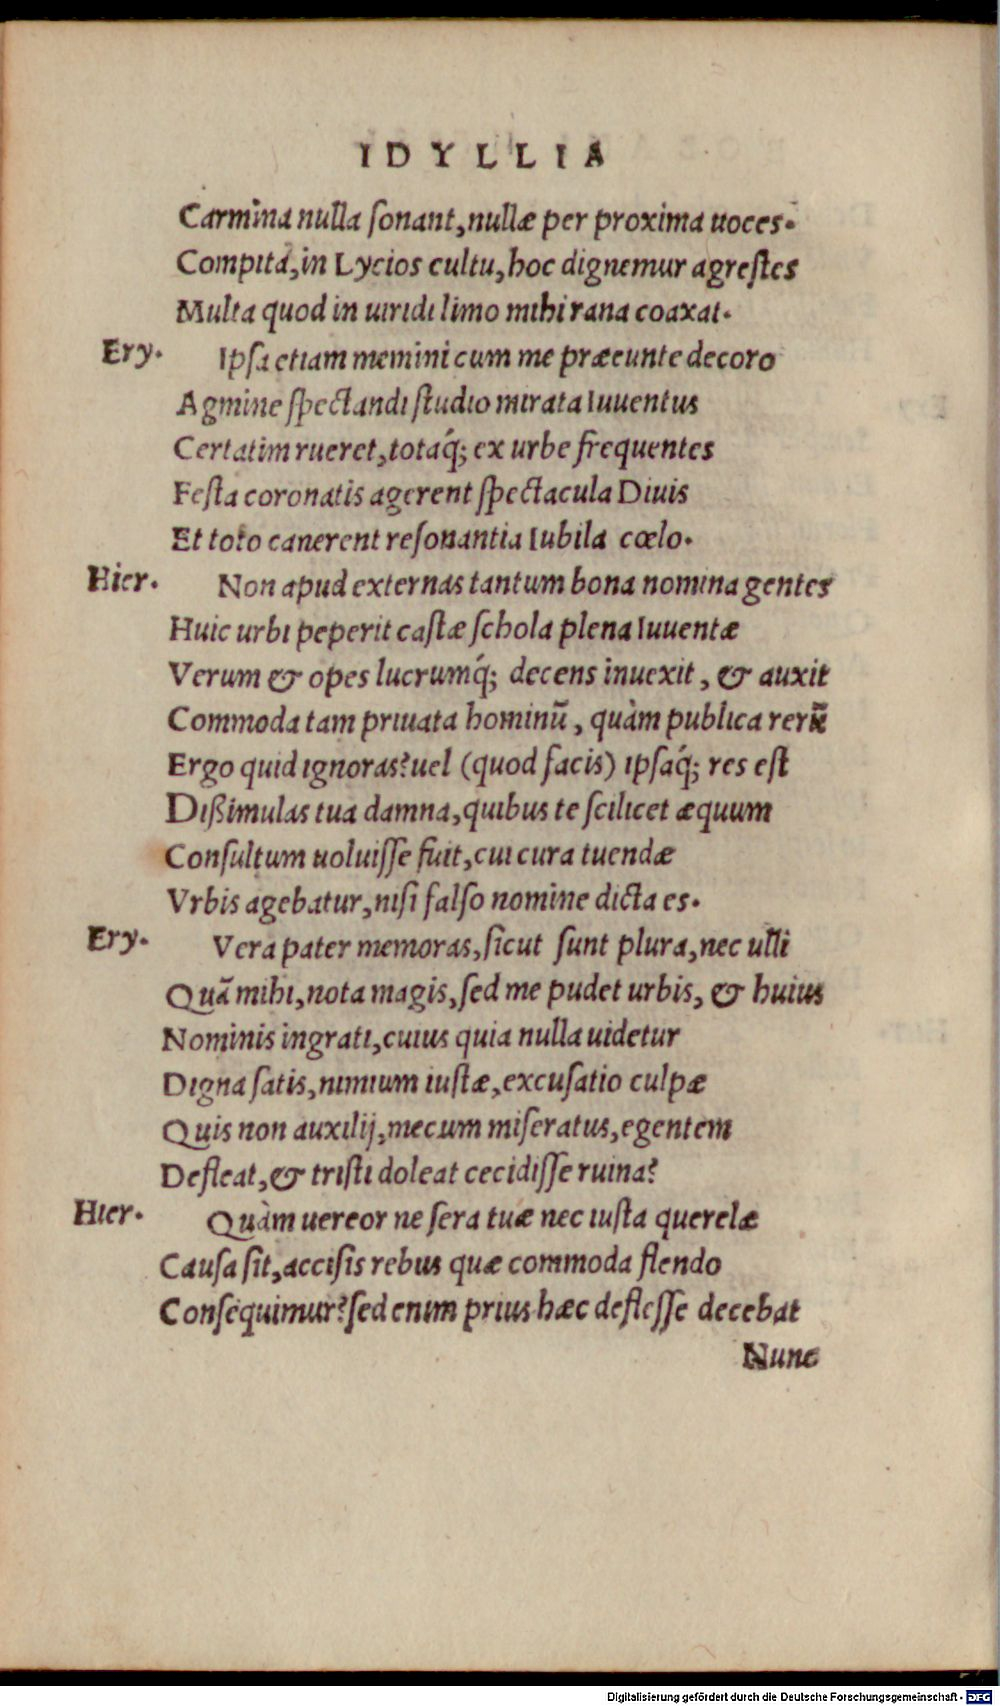 IDYLLIA
Carmina nulla ſonant, nullæ per proxima uoces.
Compita, in Lycios cultu, hoc dignemur agreſtes
Multa quod in uiridi limo mihi rana coaxat.
Ery. Ipſa etiam memini cum me præeunte decoro
Agmine ſpectandi ſtudio mirata Iuuentus
Certatim rueret, totaq́; ex urbe frequentes
Feſta coronatis agerent ſpectacula Diuis
Et toto canerent reſonantia Iubila cœlo.
Hier. Non apud externas tantum bona nomina gentes
Huic urbi peperit caſtæ ſchola plena Iuuentæ
Verum & opes lucrumq́; decens inuexit, & auxit
Commoda tam priuata hominū, quàm publica rerū
Ergo quid ignoras? uel (quod facis) ipſaq́; res eſt
Dißimulas tua damna, quibus te ſcilicet æquum
Conſultum uoluiſſe fuit, cui cura tuendæ
Vrbis agebatur, niſi falſo nomine dicta es.
Ery. Vera pater memoras, ſicut ſunt plura, nec ulli
Quā mihi, nota magis, ſed me pudet urbis, & huius
Nominis ingrati, cuius quia nulla uidetur
Digna ſatis, nimium iuſtæ, excuſatio culpæ
Quis non auxilij, mecum miſeratus, egentem
Defleat, & triſti doleat cecidiſſe ruina?
Hier. Quàm uereor ne ſera tuæ nec iuſta querelæ
Cauſa ſit, acciſis rebus quæ commoda flendo
Conſequimur? ſed enim prius hæc defleſſe decebat
Nunc
Digitalisierung gefördert durch die Deutsche Forschungsgemeinschaft - DFG